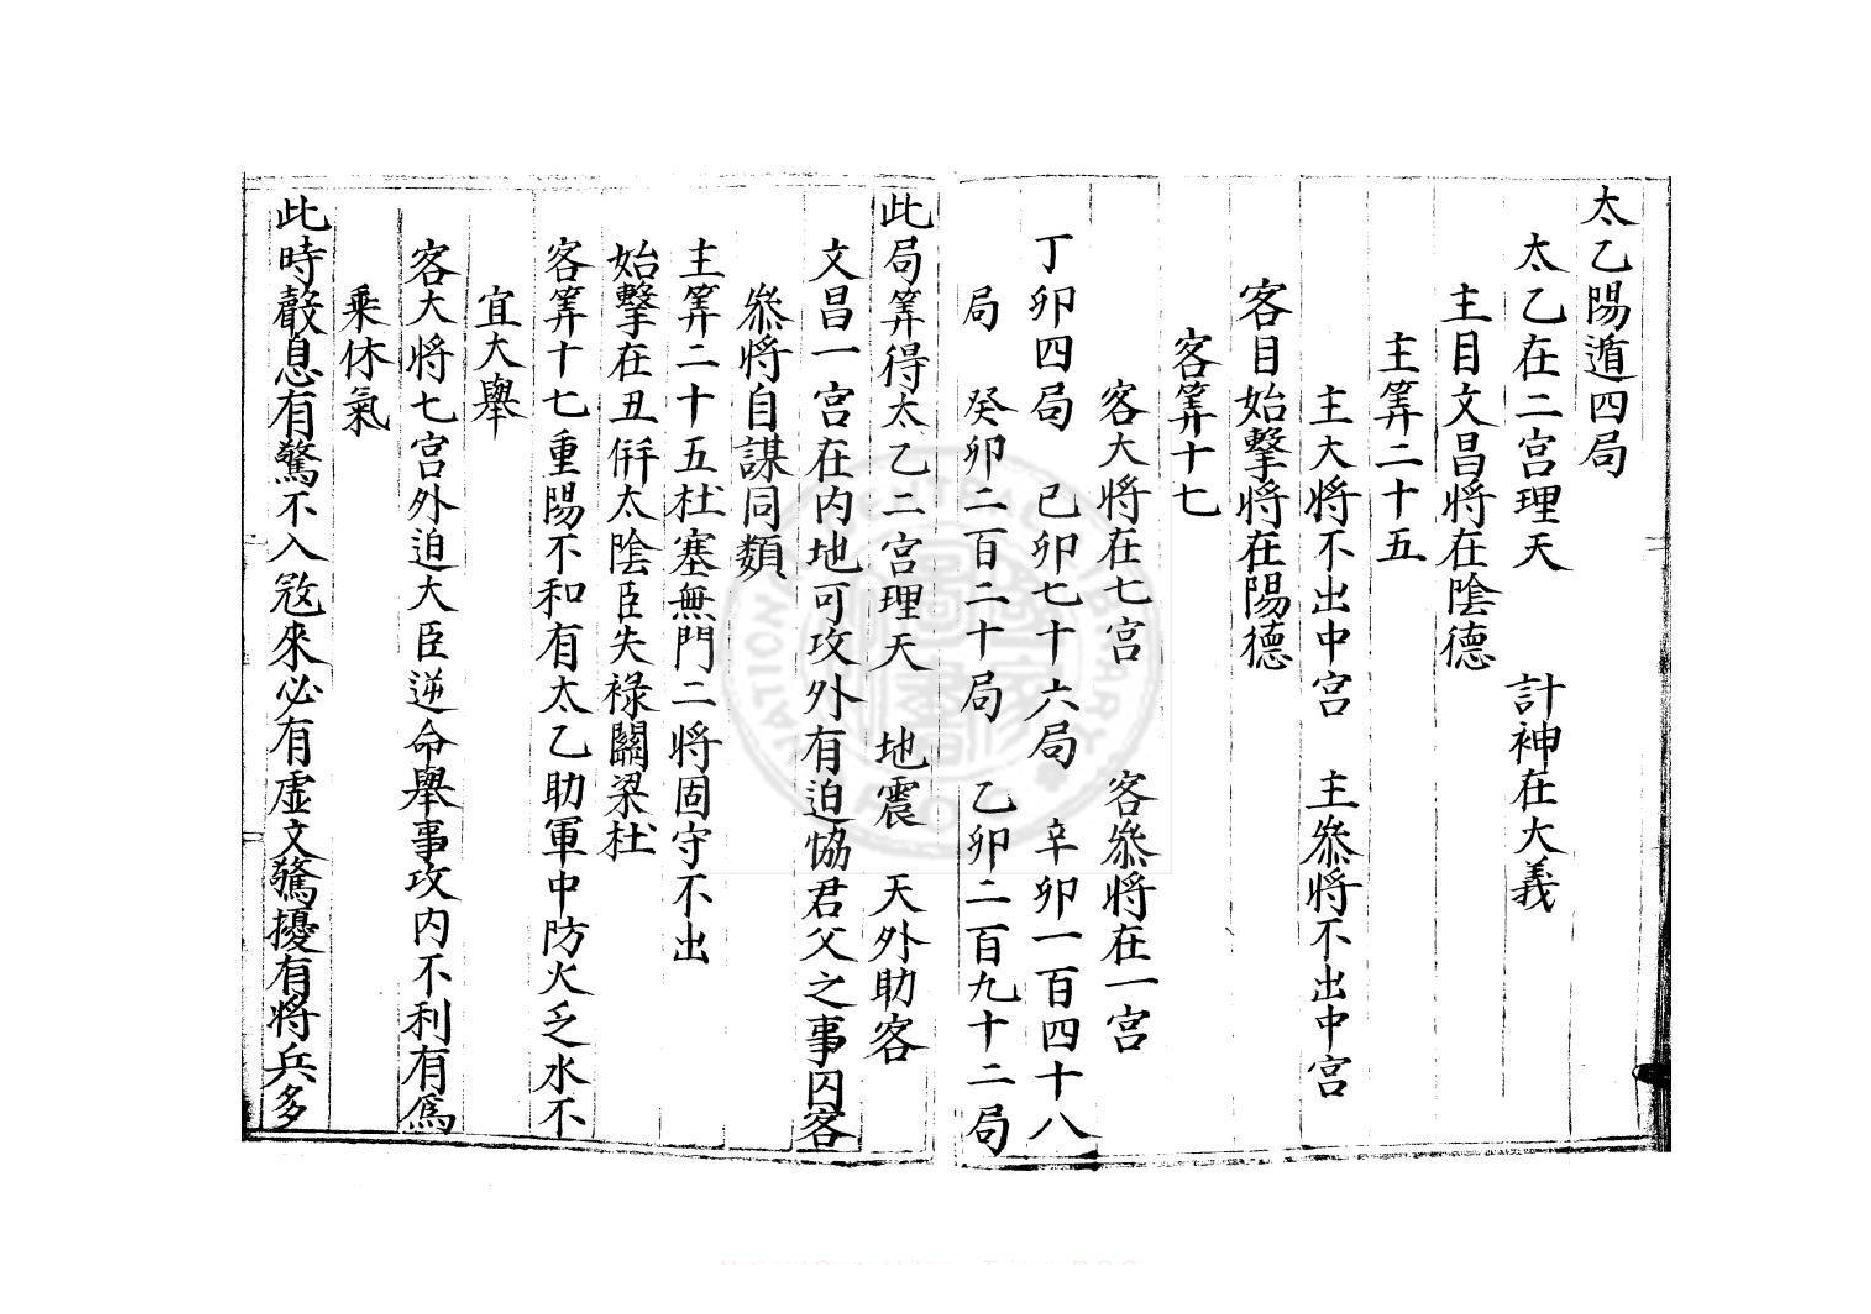 太乙陽遁四局
太乙在二宫理天　計神在大義
主目文昌將在陰德
主筭二十五
主大將不出中宫　主叅將不出中宫
客目始擊將在陽德
客筭十七
客大將在七宫　客叅將在一宫
丁卯四局　己卯七十六局　辛卯一百四十八
局　癸卯二百二十局　乙卯二百九十二局
此局筭得太乙二宫理天　地震　天外助客
文昌一宫在内地可攻外有迫恊君父之事囚客
叅將自謀同類
主筭二十五杜塞無門二將固守不出
始擊在丑倂太陰臣失禄關梁杜
客筭十七重陽不和有太乙助軍中防火乏水不
宜大舉
客大將七宫外迫大臣逆命舉事攻内不利有爲
乗休氣
此時聲息有驚不入宼來必有虚文驚擾有將兵多